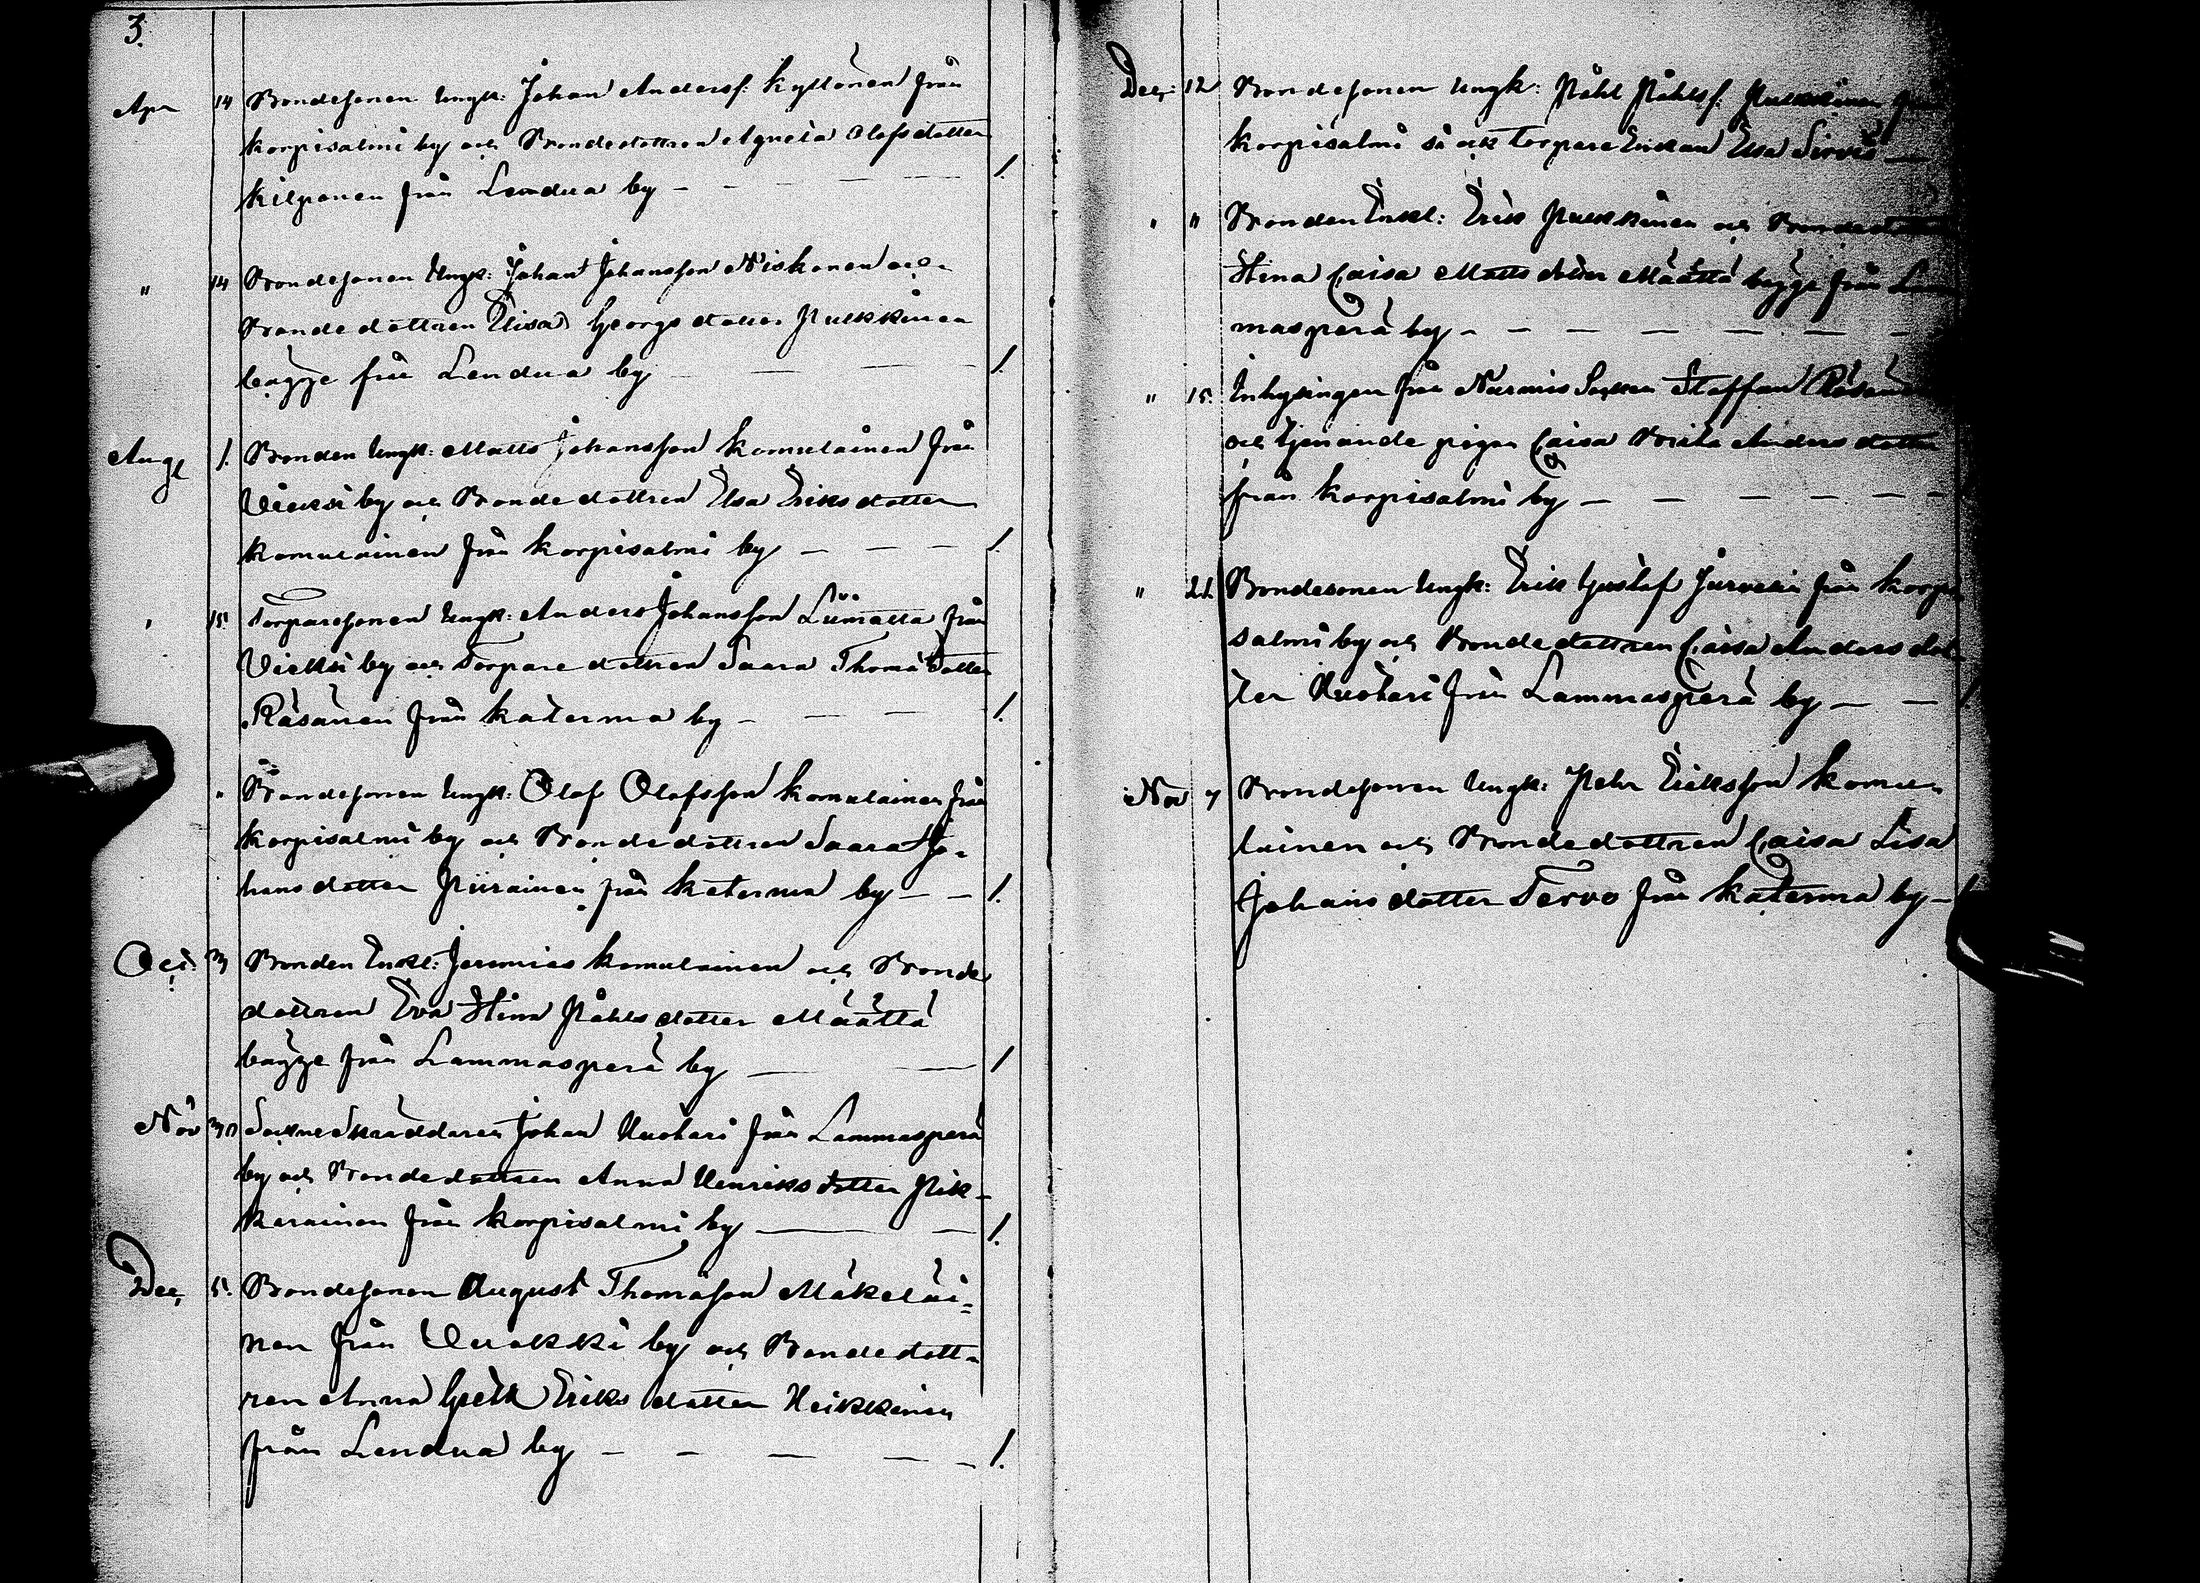 3.
Apr 14 Bondesonen Ungk: Johan Anderss: Kyllönen från
Korpisalmi by och Bondedottren Agneta Olofsdotter
Kilponen från Lendua by - - - - /.
" 14 Bondesonen Ungk: Johan Johansson Niskanen och
Bondedottren Elisa Georgsdotter Pulkkinen
bägge från Lendua by - - - /.
Aug 1. Bonden Ungk: Matts Johansson Komulainen från
Vieksi by och Bondedottren Elsa Eriksdotter
Komulainen från Korpisalmi by - - - /.
" 15. Torparesonen Ungk: Anders Johansson Liimatta från
Vieksi by och Torparedottren Saara Thomädotter
Räsänen från Katerma by - - - - /.
" Bondesonen Ungk: Olof Olofsson Komulainen från
Korpisalmi by och Bondedottren Saara Jo-
hansdotter Piirainen från Katerma by - - /.
Oct: 31 Bonden Enkl: Jeremias Komulainen och Bonde
dottren Eva Stina Påhlsdotter Määttä
bägge från Lammasperä by - - /
Nov 30 Sockneskräddaren Johan Huohari från Lammasperä
by och Bondedottren Anna Henriksdotter Pik-
karainen från Korpisalmi by - - /.
Dec, 5. Bondesonen August Thomäson Mäkeläi-
nen från Vuokki by och Bondedott-
ren Anna Greta Eriksdotter Heikkinen
från Lendua by - - - - - /.
Dec: 12 Bondesonen Ungk: Påhl Påhlss: Pulkkinen från
Korpisalmi så ock Torpare Enkan Elsa Sirviö -
" " Bonden Enkl: Erik Pulkkinen och Bondedottren
Stina Caisa Mattsdotter Määttä bägge från Lam
masperä by - - - - - - -
" 15. Inhysingen från Nurmis Socken Staffan Räsänen
och tjenande pigan Caisa Brita Andersdotter
från Korpisalmi by - - - - - -
" 22 Bondesonen Ungk: Erik Gustaf Jurvelin från Korpi
salmi by och Bondedottren Caisa Andersdot-
ter Huohari från Lammasperä by - - /
Nov 7 Bondesonen Ungk: Petr Eriksson Komu-
lainen och Bondedottren Caisa Lisa
Johansdotter Tervo från Katerma by -